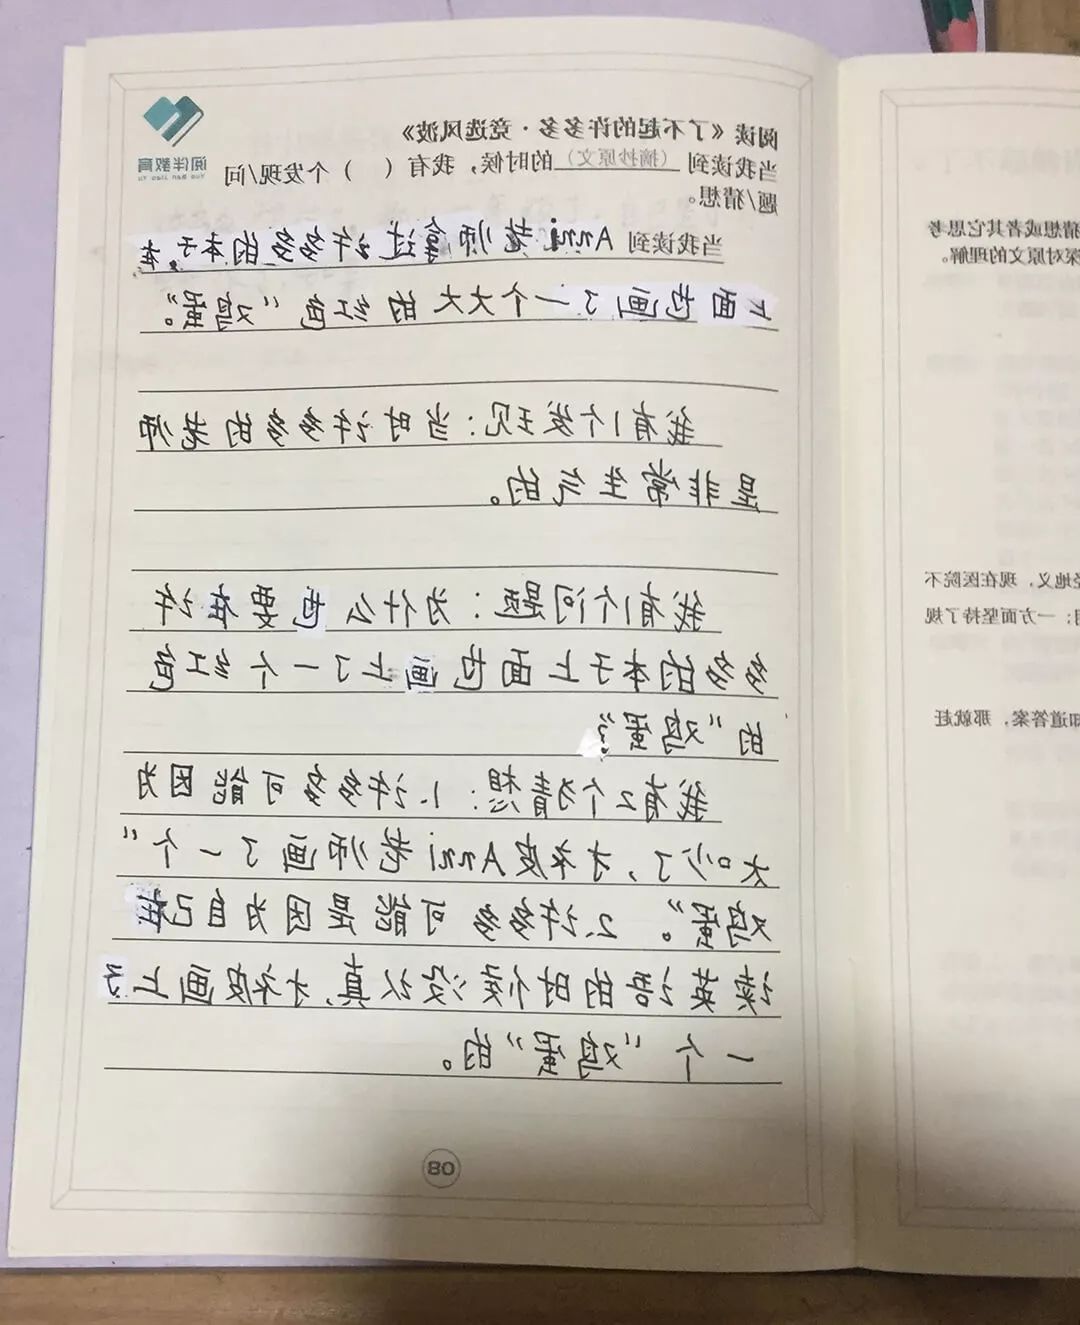 阅伴教育
Yue Ban Jiao Yu
阅读《了不起的许多多·竞选风波》
当我读到（摘抄原文）的时候，我有（ ）个发现/问
题/猜想。
当我读到 Anni老师拿过许多多的本子，在
上面也画了一个大大的红色“鸡蛋”。
我有1个发现：当时许多多的老师
是非常生气的。
我有1个问题：为什么也要在许
多多的本子上面也画上了一个红色
的“鸡蛋”？
我有2个猜想：1.许多多可能因为
太吵了，才被Anni老师画了一个“
鸡蛋”。2.许多多可能是因为自己在
读英语的时候没认真，才被画上了
一个“鸡蛋”的。
80
猜想或者其它思考
深对原文的理解。
经地义，现在医院不
用；一方面坚持了规
知道答案，那就赶